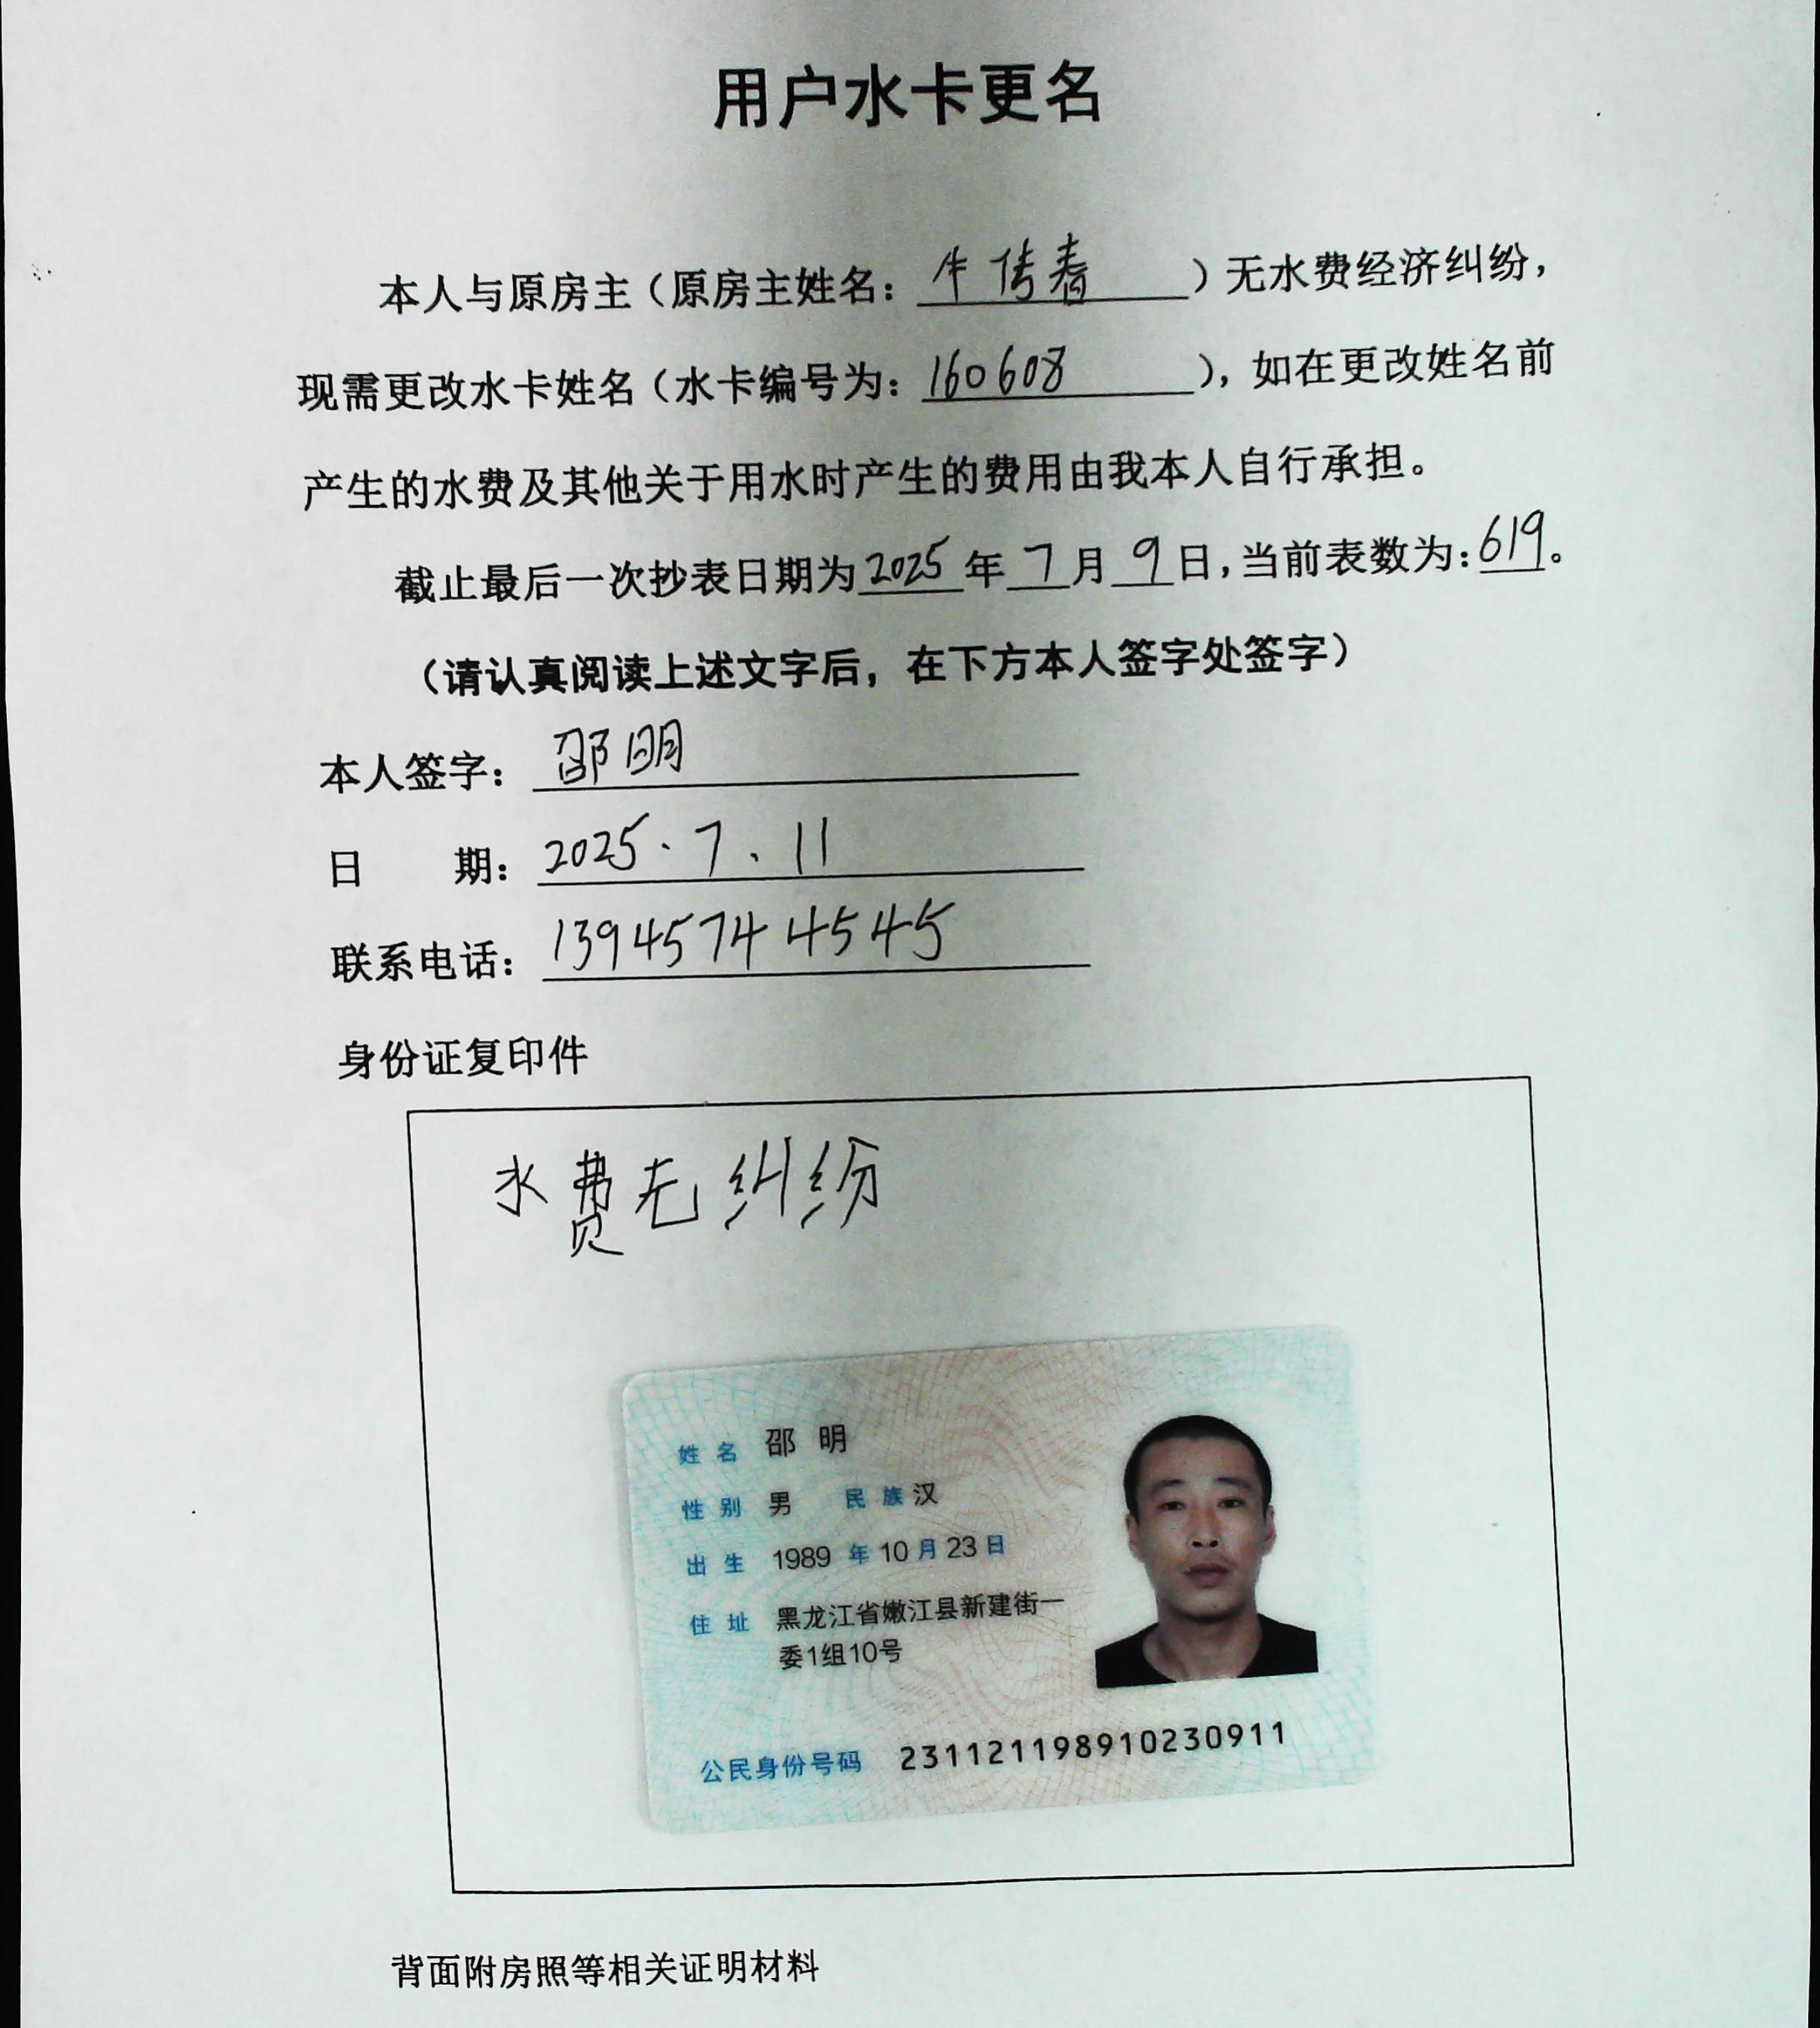 用户水卡更名
本人与原房主（原房主姓名：牛传春）无水费经济纠纷，
现需更改水卡姓名（水卡编号为：160608），如在更改姓名前
产生的水费及其他关于用水时产生的费用由我本人自行承担。
截止最后一次抄表日期为2025年7月9日，当前表数为：619。
（请认真阅读上述文字后，在下方本人签字处签字）
本人签字：邵明
日期：2025.7.11
联系电话：13945744545
身份证复印件
水费无纠纷
姓名 邵明
性别 男 民族 汉
出生 1989年10月23日
住址 黑龙江省嫩江县新建街一
委1组10号
公民身份号码 231121198910230911
背面附房照等相关证明材料